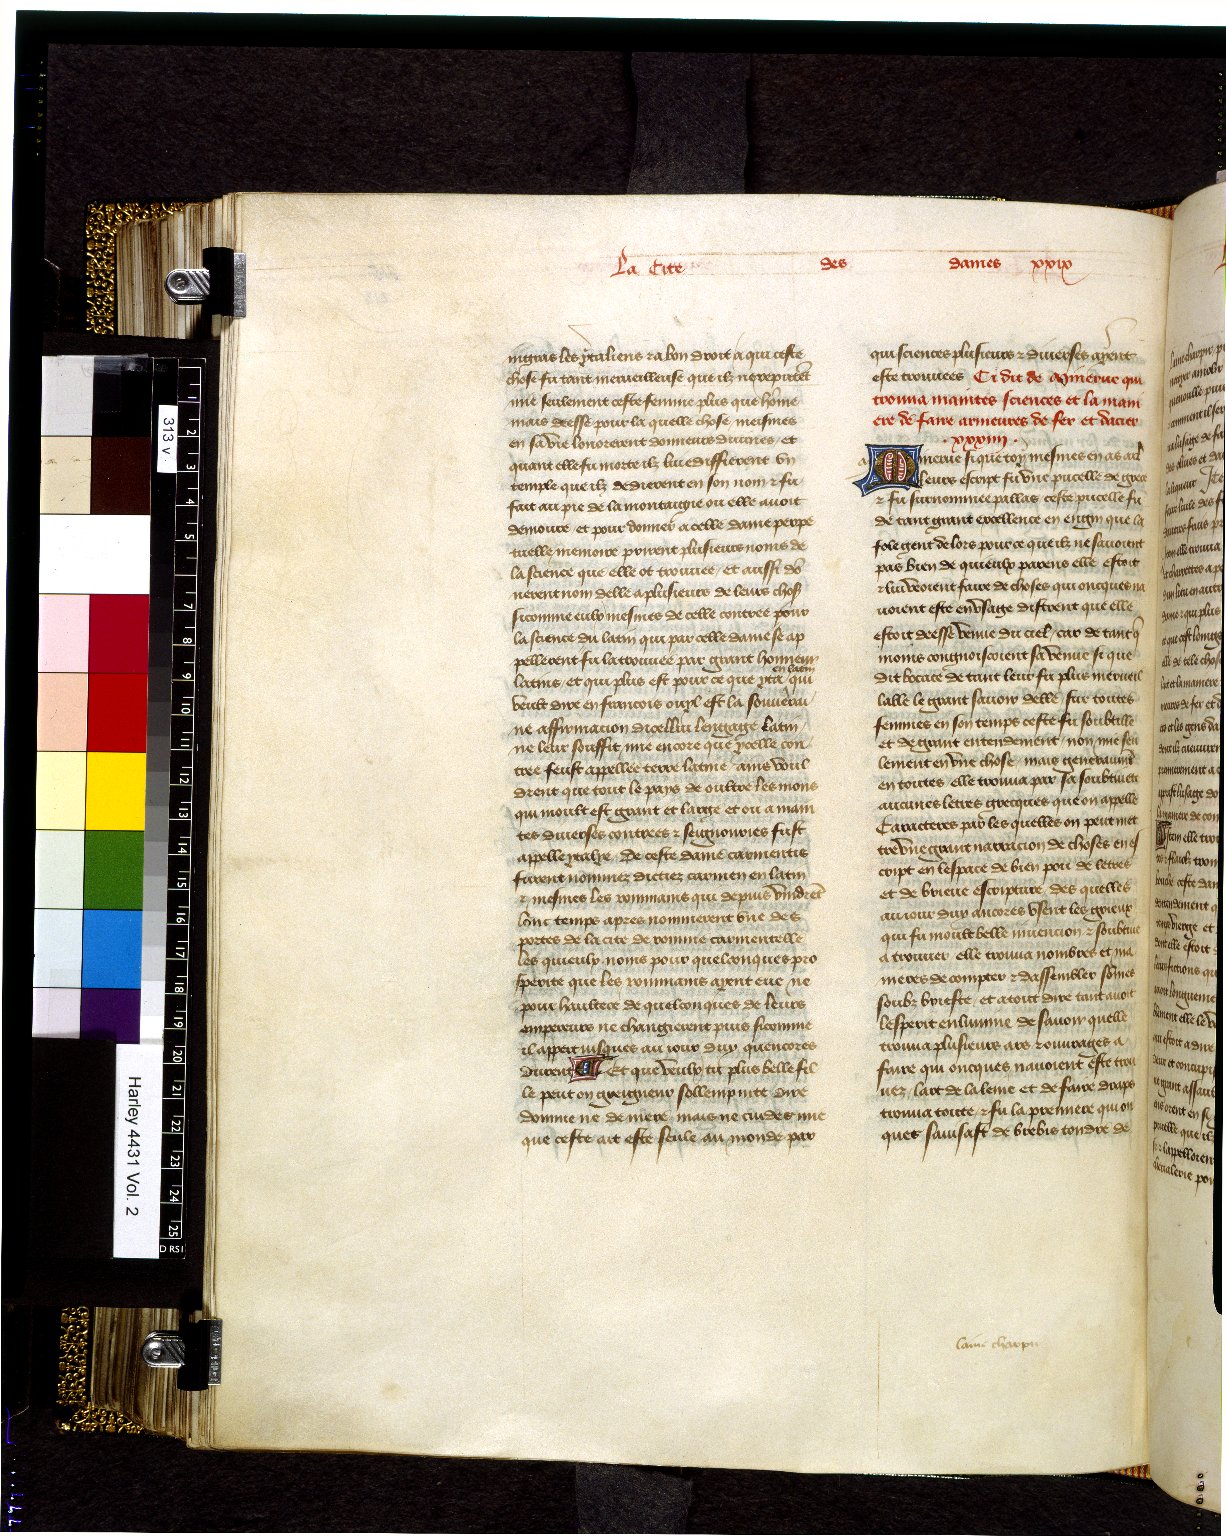 La Cite des dames xxix
nigras les ytaliens ⁊ a bon droit a qui ceste
chose fu tant merueilleuse que ilz ne reputerent
mie seulement ceste femme plus que homme
mais deesse pour la quelle chose meismes
en sa vie lonorerent donneurs diuines / et
quant elle fu morte ilz lui ediffierent vn
temple que ilz dedierent en son nom ⁊ fu
fait au pie de la montaigne ou elle auoit
demoure / et pour donner a celle dame perpe
tuelle memoire prirent plusieurs noms de
la science que elle ot trouuee / et aussi do
nerent nom delle a plusieurs de leurs choses
si comme eulx mesmes de celle contree pour
la science du latin qui par celle dame se ap
pellerent fu la trouuee par grant honneur
latins / et qui plus est pour ce que yta en latin qui
veult dire en francois ouyl est la souuerai
ne affirmacion dicellui lengaige latin /
ne leur souffit mie encore que ycelle con
tree feust appellee terre latine / ains voul
drent que tout le pays de oultre les mons
qui moult est grant et large et ou a main
tes diuerses contrees ⁊ seignouries fust
appelle ytalye / De ceste dame carmentis
furent nommez dictiez carmen en latin
⁊ mesmes les rommains qui depuis vindrent
lonc temps apres nommerent vne des
portes de la cite de romme carmentelle
les quieulx noms pour quelconques pro
sperite que les rommains ayent eue ne
pour haultece de quelconques de leurs
empereurs ne changierent puis sicomme
il appert iusques au iour duy quencores
durent Et que veulx tu plus belle fil
le peut on greigneur sollempnite dire
domme ne de mere / mais ne cuides mie
que ceste ait este seule au monde par
qui sciences plusieurs ⁊ diuerses ayent
este trouuees Ci dit de Minerue qui
trouua maintes sciences et la mani
ere de faire armeures de fer et dacier
. xxxiiii .
Minerue si que toy mesmes en as ail
leurs escript fu vne pucelle de grece
⁊ fu surnommee pallas ceste pucelle fu
de tant grant excellence en engin que la
fole gent de lors pour ce que ilz ne sauoient
pas bien de quieulx parens elle estoit
⁊ lui veoient faire de choses qui oncques na
uoient este en vsage distrent que elle
estoit deesse venue du ciel / car de tant que
moins congnoiscoient sa venue si que
dit bocace de tant leur fu plus merueil
lable le grant sauoir delle / sur toutes
femmes en son temps ceste fu soubtille
et de grant entendement / non mie seu
lement en vne chose / mais generaument
en toutes / elle trouua par sa soubtiueté
aucunes letres grecques que on appelle
Caracteres par les quelles on peut met
tre vne grant narracion de choses en es
cript en lespace de bien pou de letres
et de brieue escripture / des quelles
au iour duy ancores vsent les grieux
qui fu moult belle inuencion ⁊ soubtiue
a trouuer / elle trouua nombres et ma
nieres de compter ⁊ dassembler sommes
soubz briefte / et a tout dire tant auoit
lesperit enlumine de sauoir quelle
trouua plusieurs ars ⁊ ouurages a
faire qui oncques nauoient este trou
uez / lart de la leine et de faire draps
trouua toute / ⁊ fu la premiere qui on
ques sauisast de brebis tondre de
laine charpir
313 v.
Harley 4431 Vol. 2
1
2
3
4
5
7
8
9
10
11
12
13
14
15
16
17
18
19
20
21
22
23
24
25